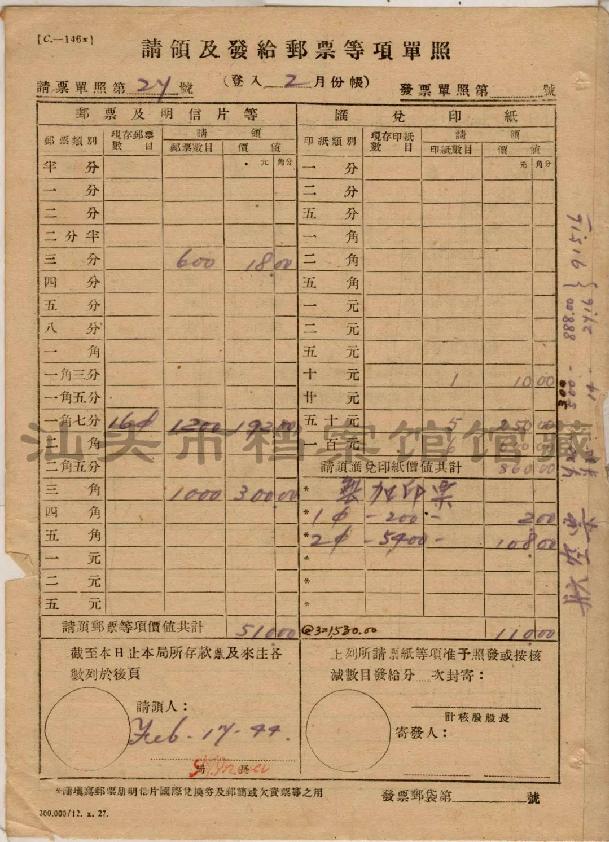 [C.—146x]
請領及發給郵票等項單照
請票單照第 27 號
(登入 2 月份帳)
發票單照第 號
郵票及明信片等
匯兌印紙
郵票類別 現存郵票數目 請領 郵票數目 價值
印紙類別 現存印紙數目 請領 印紙數目 價值
元 角分
元 角分
半分
一分
一分
二分
二分
五分
二分半
一角
三分 600 18.00
二角
四分
五角
五分
一元
八分
二元
一角
五元
一角三分
十元 1 10.00
一角五分
廿元
一角七分 16¢ 1200 192.00
五十元 5 250.00
一百元
二角五分
請領匯兌印紙價值共計 860.00
三角 1000 300.00
* 加印票
四角
* 1¢ -200- 2.00
五角
* 2¢ -5400- 108.00
一元
*
二元
*
五元
*
請領郵票等項價值共計 510.00
@3%1530.00 110.00
截至本日止本局所存款票及來往各數列於後頁
上列所請票紙等項准予照發或按核減數目發給分 次封寄:
請領人:
計核股股長
Feb. 17. 44.
寄發人:
局長
*請填寫郵票册明信片國際兌換券及郵簡或欠資票等之用
發票郵袋第 號
300,000/12. x. 27.
汕头市档案馆馆藏